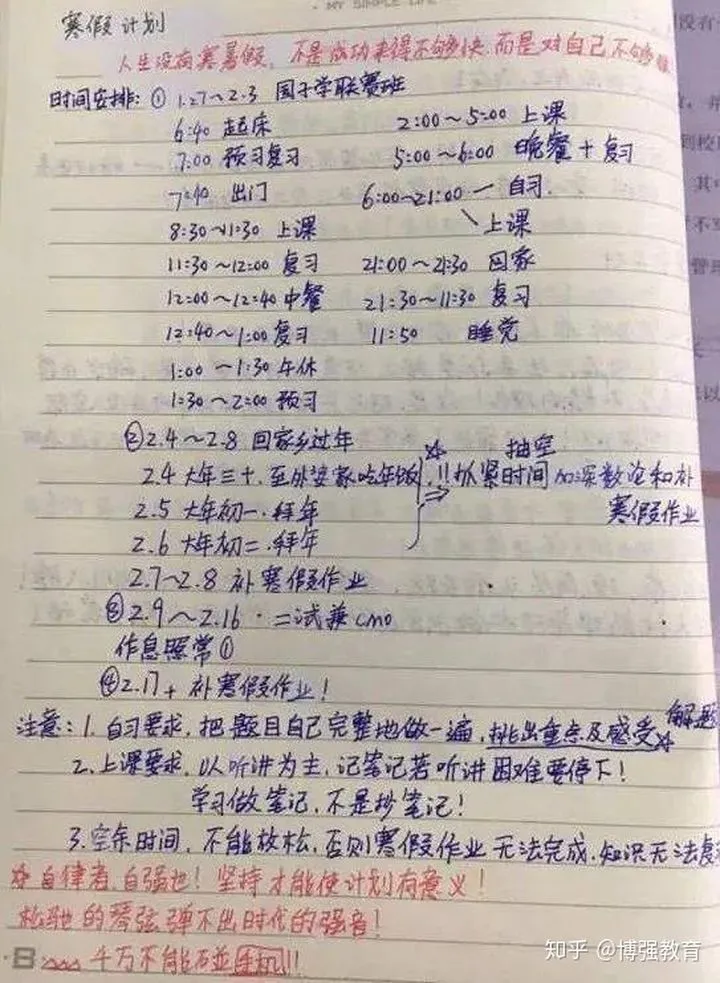 MY SIMPLE LIFE
寒假计划
人生没有寒暑假，不是成功来得不够快，而是对自己不够狠
时间安排：① 1.27～2.3 国子学联赛班
6:40 起床 2:00～5:00 上课
7:00 预习复习 5:00～6:00 晚餐＋复习
7:40 出门 6:00～21:00 自习
8:30～11:30 上课 上课
11:30～12:00 复习 21:00～21:30 回家
12:00～12:40 中餐 21:30～11:30 复习
12:40～1:00 复习 11:50 睡觉
1:00～1:30 午休
1:30～2:00 预习
② 2.4～2.8 回家乡过年 抽空
2.4 大年三十．至外婆家吃年饭 !! 抓紧时间加深数论和补
2.5 大年初一．拜年 寒假作业
2.6 大年初二．拜年
2.7～2.8 补寒假作业
③ 2.9～2.16 · 二试兼CMO
作息照常①
④ 2.17+ 补寒假作业！
注意：1. 自习要求，把题目自己完整地做一遍，挑出重点及感受 解题
2. 上课要求，以听讲为主，记笔记若听讲困难要停下！
学习做笔记，不是抄笔记！
3. 空余时间，不能放松，否则寒假作业无法完成．知识无法复
☆自律者，自强也！坚持才能使计划有意义！
松驰的琴弦弹不出时代的强音！
8 千万不能碰手机!!
知乎 @博强教育